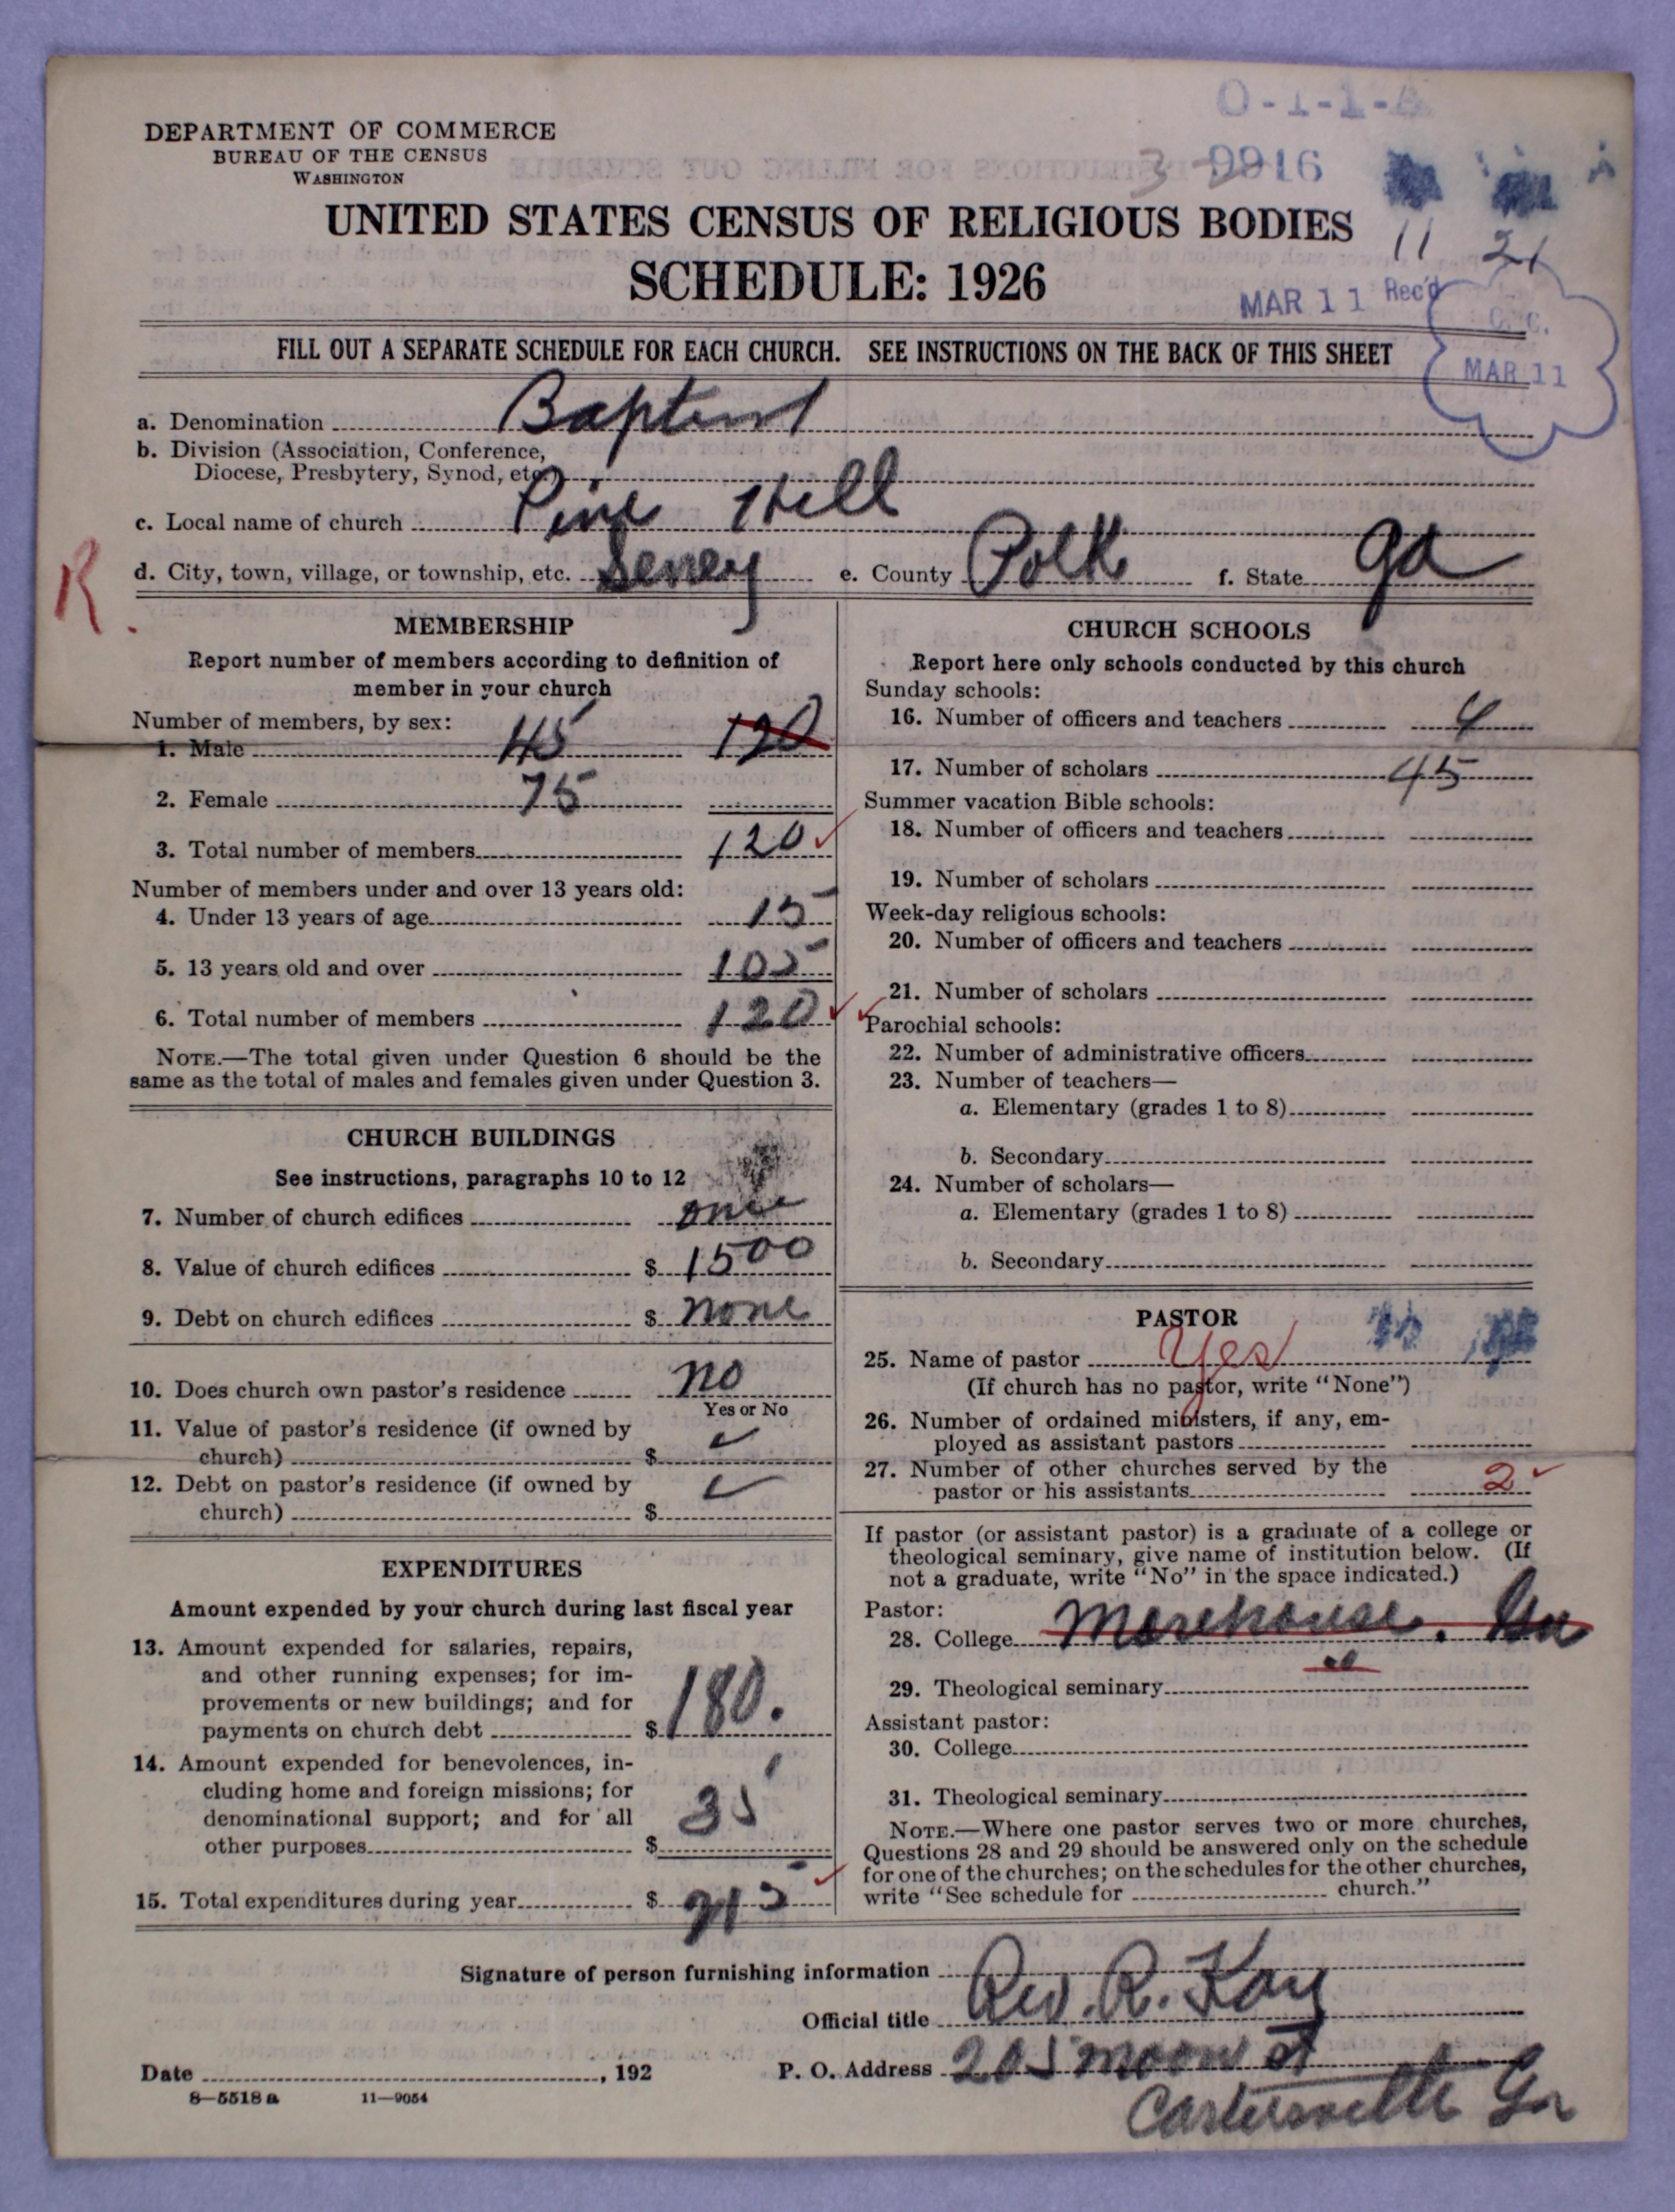 O-1-1-A
DEPARTMENT OF COMMERCE
BUREAU OF THE CENSUS
WASHINGTON
3 9916
UNITED STATES CENSUS OF RELIGIOUS BODIES
11 21
SCHEDULE: 1926
MAR 11 Rec'd
MAR 11
FILL OUT A SEPARATE SCHEDULE FOR EACH CHURCH. SEE INSTRUCTIONS ON THE BACK OF THIS SHEET
a. Denomination Baptist
b. Division (Association, Conference,
Diocese, Presbytery, Synod, etc.)
c. Local name of church Pine Hill
R.
d. City, town, village, or township, etc. Seney e. County Polk f. State Ga
MEMBERSHIP
Report number of members according to definition of
member in your church
Number of members, by sex:
1. Male 45 120
2. Female 75
3. Total number of members 120
Number of members under and over 13 years old:
4. Under 13 years of age 15
5. 13 years old and over 105
6. Total number of members 120
NOTE.—The total given under Question 6 should be the
same as the total of males and females given under Question 3.
CHURCH BUILDINGS
See instructions, paragraphs 10 to 12
7. Number of church edifices one
8. Value of church edifices $ 1500
9. Debt on church edifices $ none
10. Does church own pastor's residence no
Yes or No
11. Value of pastor's residence (if owned by
church) $
12. Debt on pastor's residence (if owned by
church) $
EXPENDITURES
Amount expended by your church during last fiscal year
13. Amount expended for salaries, repairs,
and other running expenses; for im-
provements or new buildings; and for
payments on church debt $ 180.
14. Amount expended for benevolences, in-
cluding home and foreign missions; for
denominational support; and for all
other purposes $ 35
15. Total expenditures during year $ 215
CHURCH SCHOOLS
Report here only schools conducted by this church
Sunday schools:
16. Number of officers and teachers 4
17. Number of scholars 45
Summer vacation Bible schools:
18. Number of officers and teachers
19. Number of scholars
Week-day religious schools:
20. Number of officers and teachers
21. Number of scholars
Parochial schools:
22. Number of administrative officers
23. Number of teachers—
a. Elementary (grades 1 to 8)
b. Secondary
24. Number of scholars—
a. Elementary (grades 1 to 8)
b. Secondary
PASTOR
25. Name of pastor Yes
(If church has no pastor, write "None")
26. Number of ordained ministers, if any, em-
ployed as assistant pastors
27. Number of other churches served by the
pastor or his assistants 2
If pastor (or assistant pastor) is a graduate of a college or
theological seminary, give name of institution below. (If
not a graduate, write "No" in the space indicated.)
Pastor:
28. College Morehouse.
29. Theological seminary
Assistant pastor:
30. College
31. Theological seminary
NOTE.—Where one pastor serves two or more churches,
Questions 28 and 29 should be answered only on the schedule
for one of the churches; on the schedules for the other churches,
write "See schedule for church."
Signature of person furnishing information
Official title Rev. R. Kay
Date , 192 P. O. Address 205 Moon St
8—5518 a 11—9054
Cartersville Ga